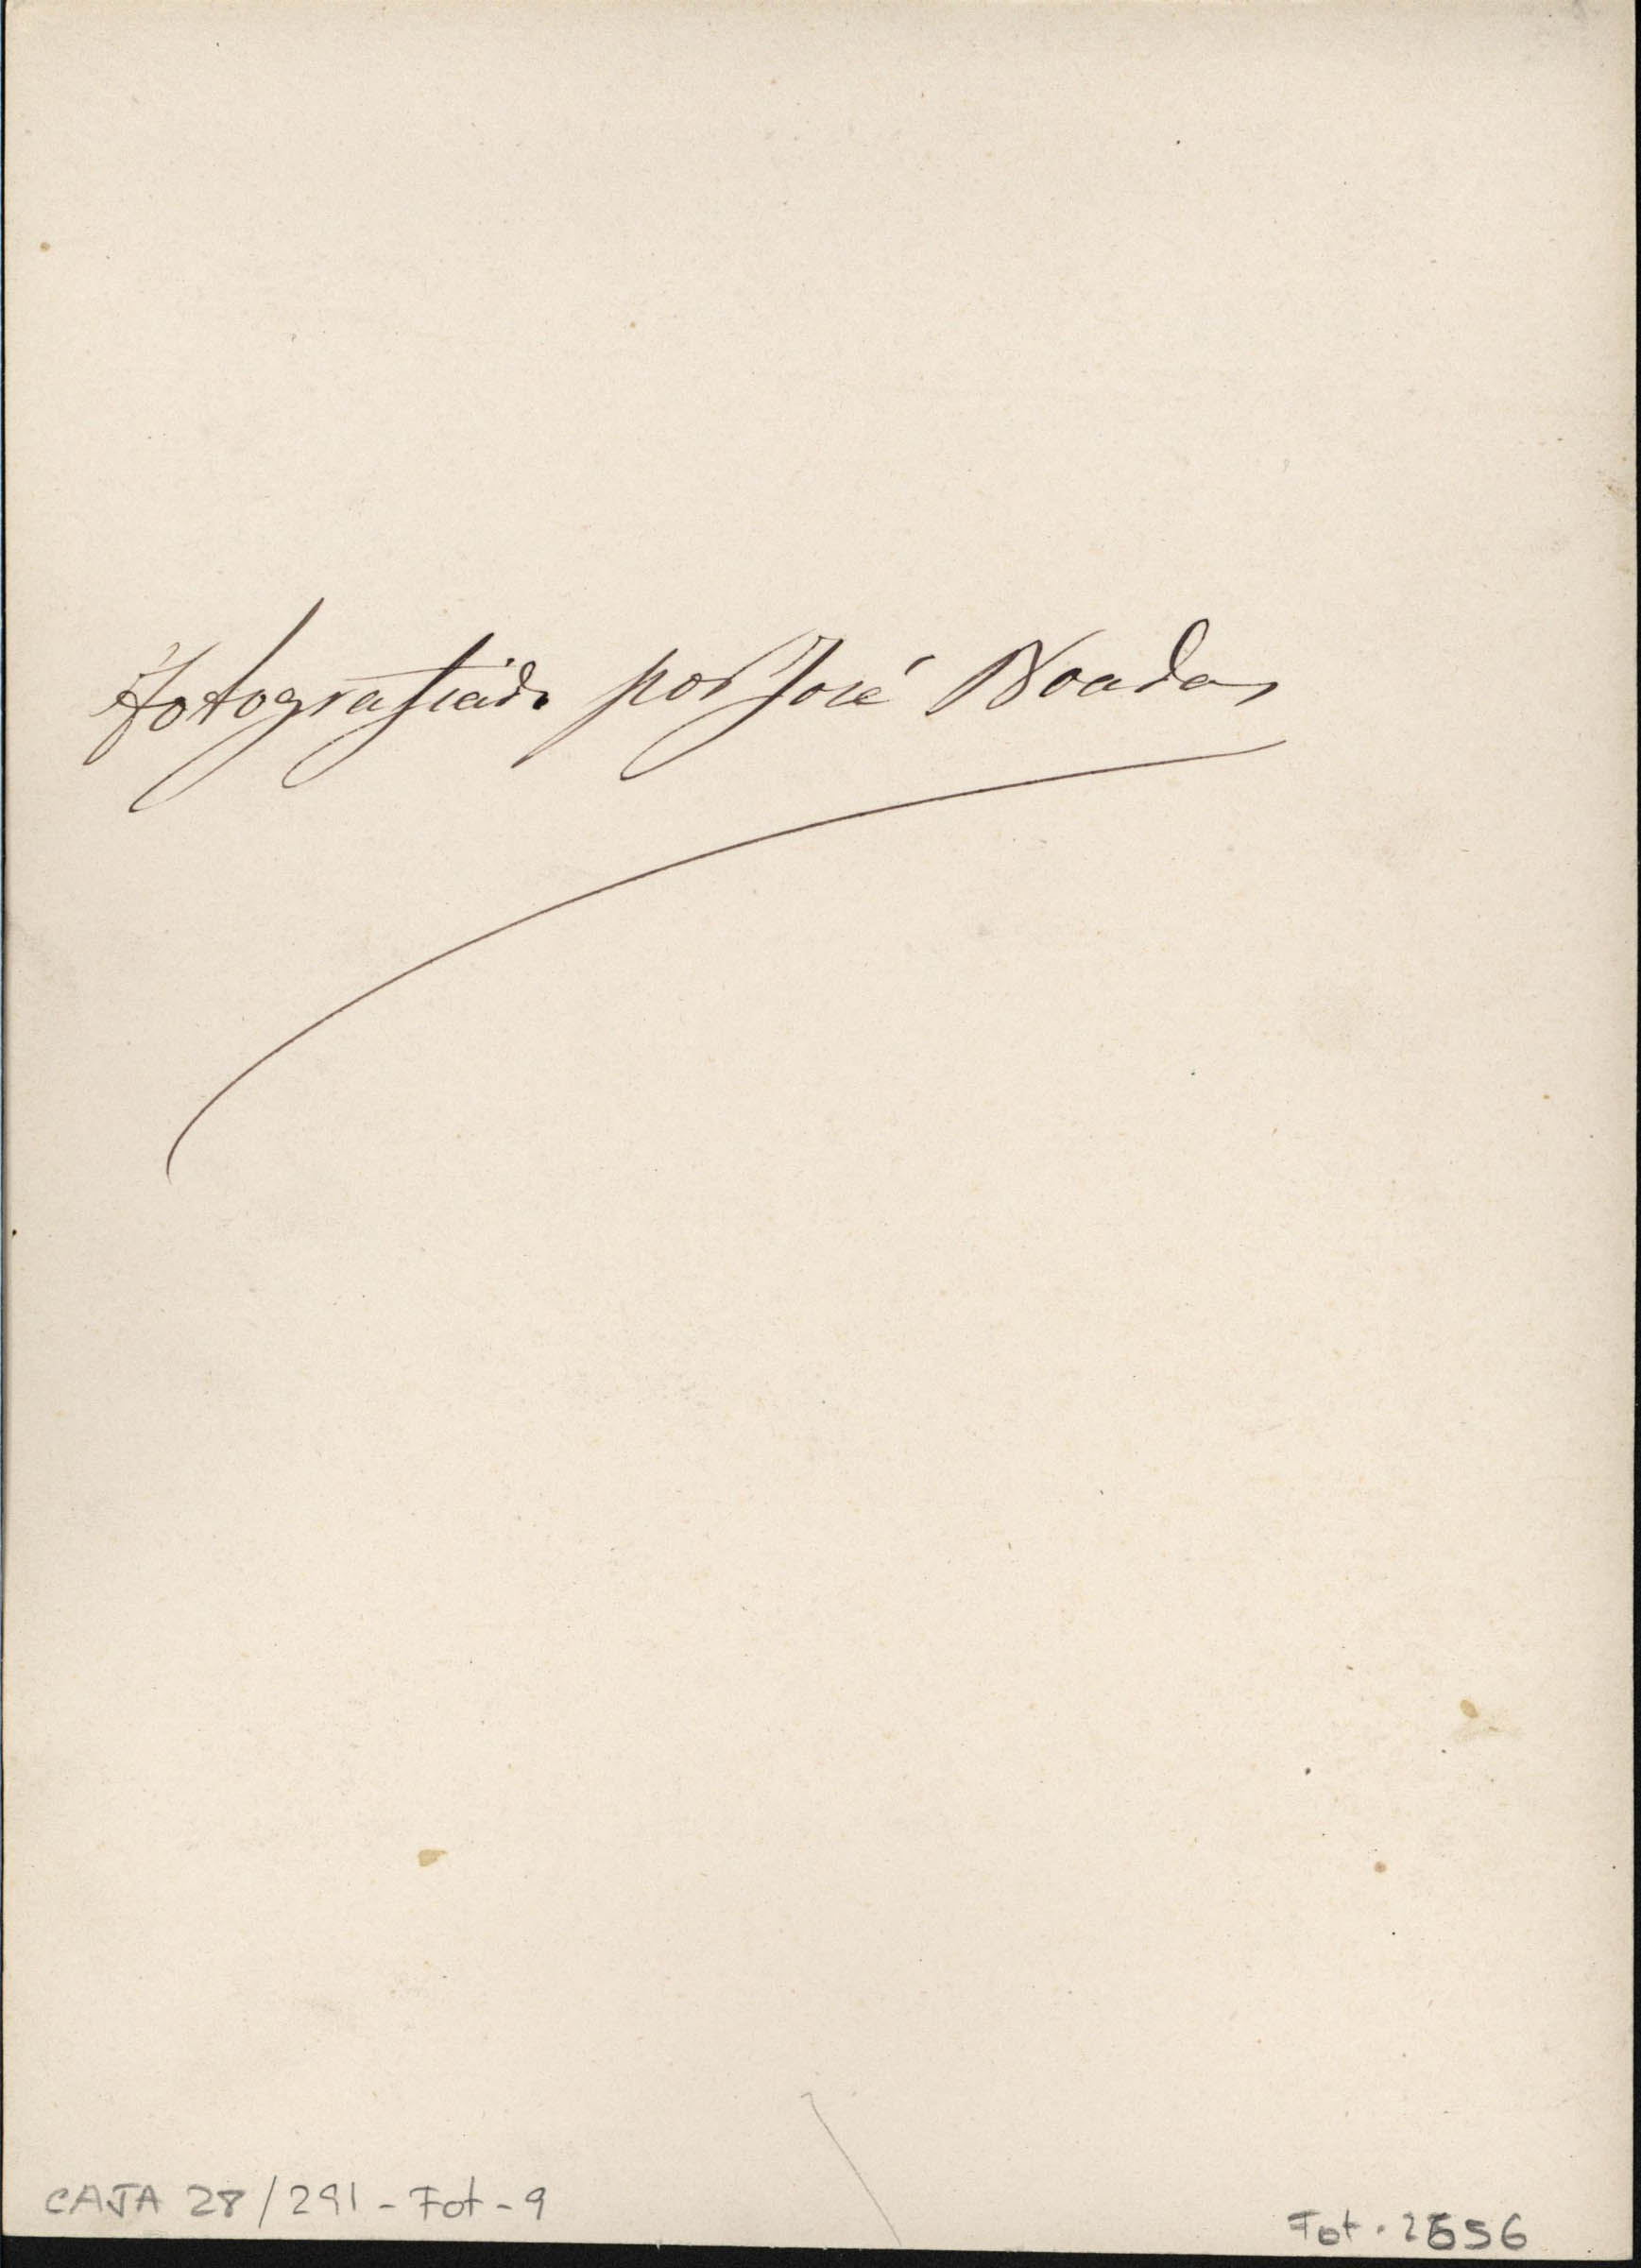 Fotografiado por José Boadas
CAJA 28/291 - Fot - 9
Fot. 2656